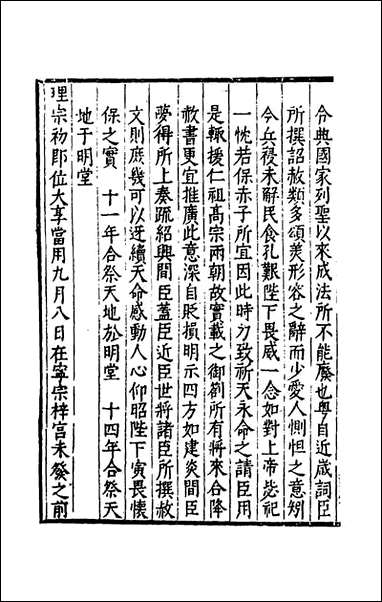 令典國家列聖以來成法所不能廢也粵自近歲詞臣
所撰詔赦類多頌美形容之辭而少愛人惻怛之意矧
今兵役未解民食孔艱陛下畏威一念如對上帝毖祀
一忱若保赤子所宜因此時力致祈天永命之請臣用
是輒援仁祖高宗兩朝故實載之御劄所有將來合降
赦書更宜推廣此意深自貶損明示四方如建炎間臣
夢得所上奏疏紹興間臣蓋臣近臣世將諸臣所撰赦
文則庶幾可以迓續天命感動人心仰昭陛下寅畏懷
保之實 十一年合祭天地於明堂 十四年合祭天
地于明堂
理宗初即位大享當用九月八日在寧宗梓宮未發之前